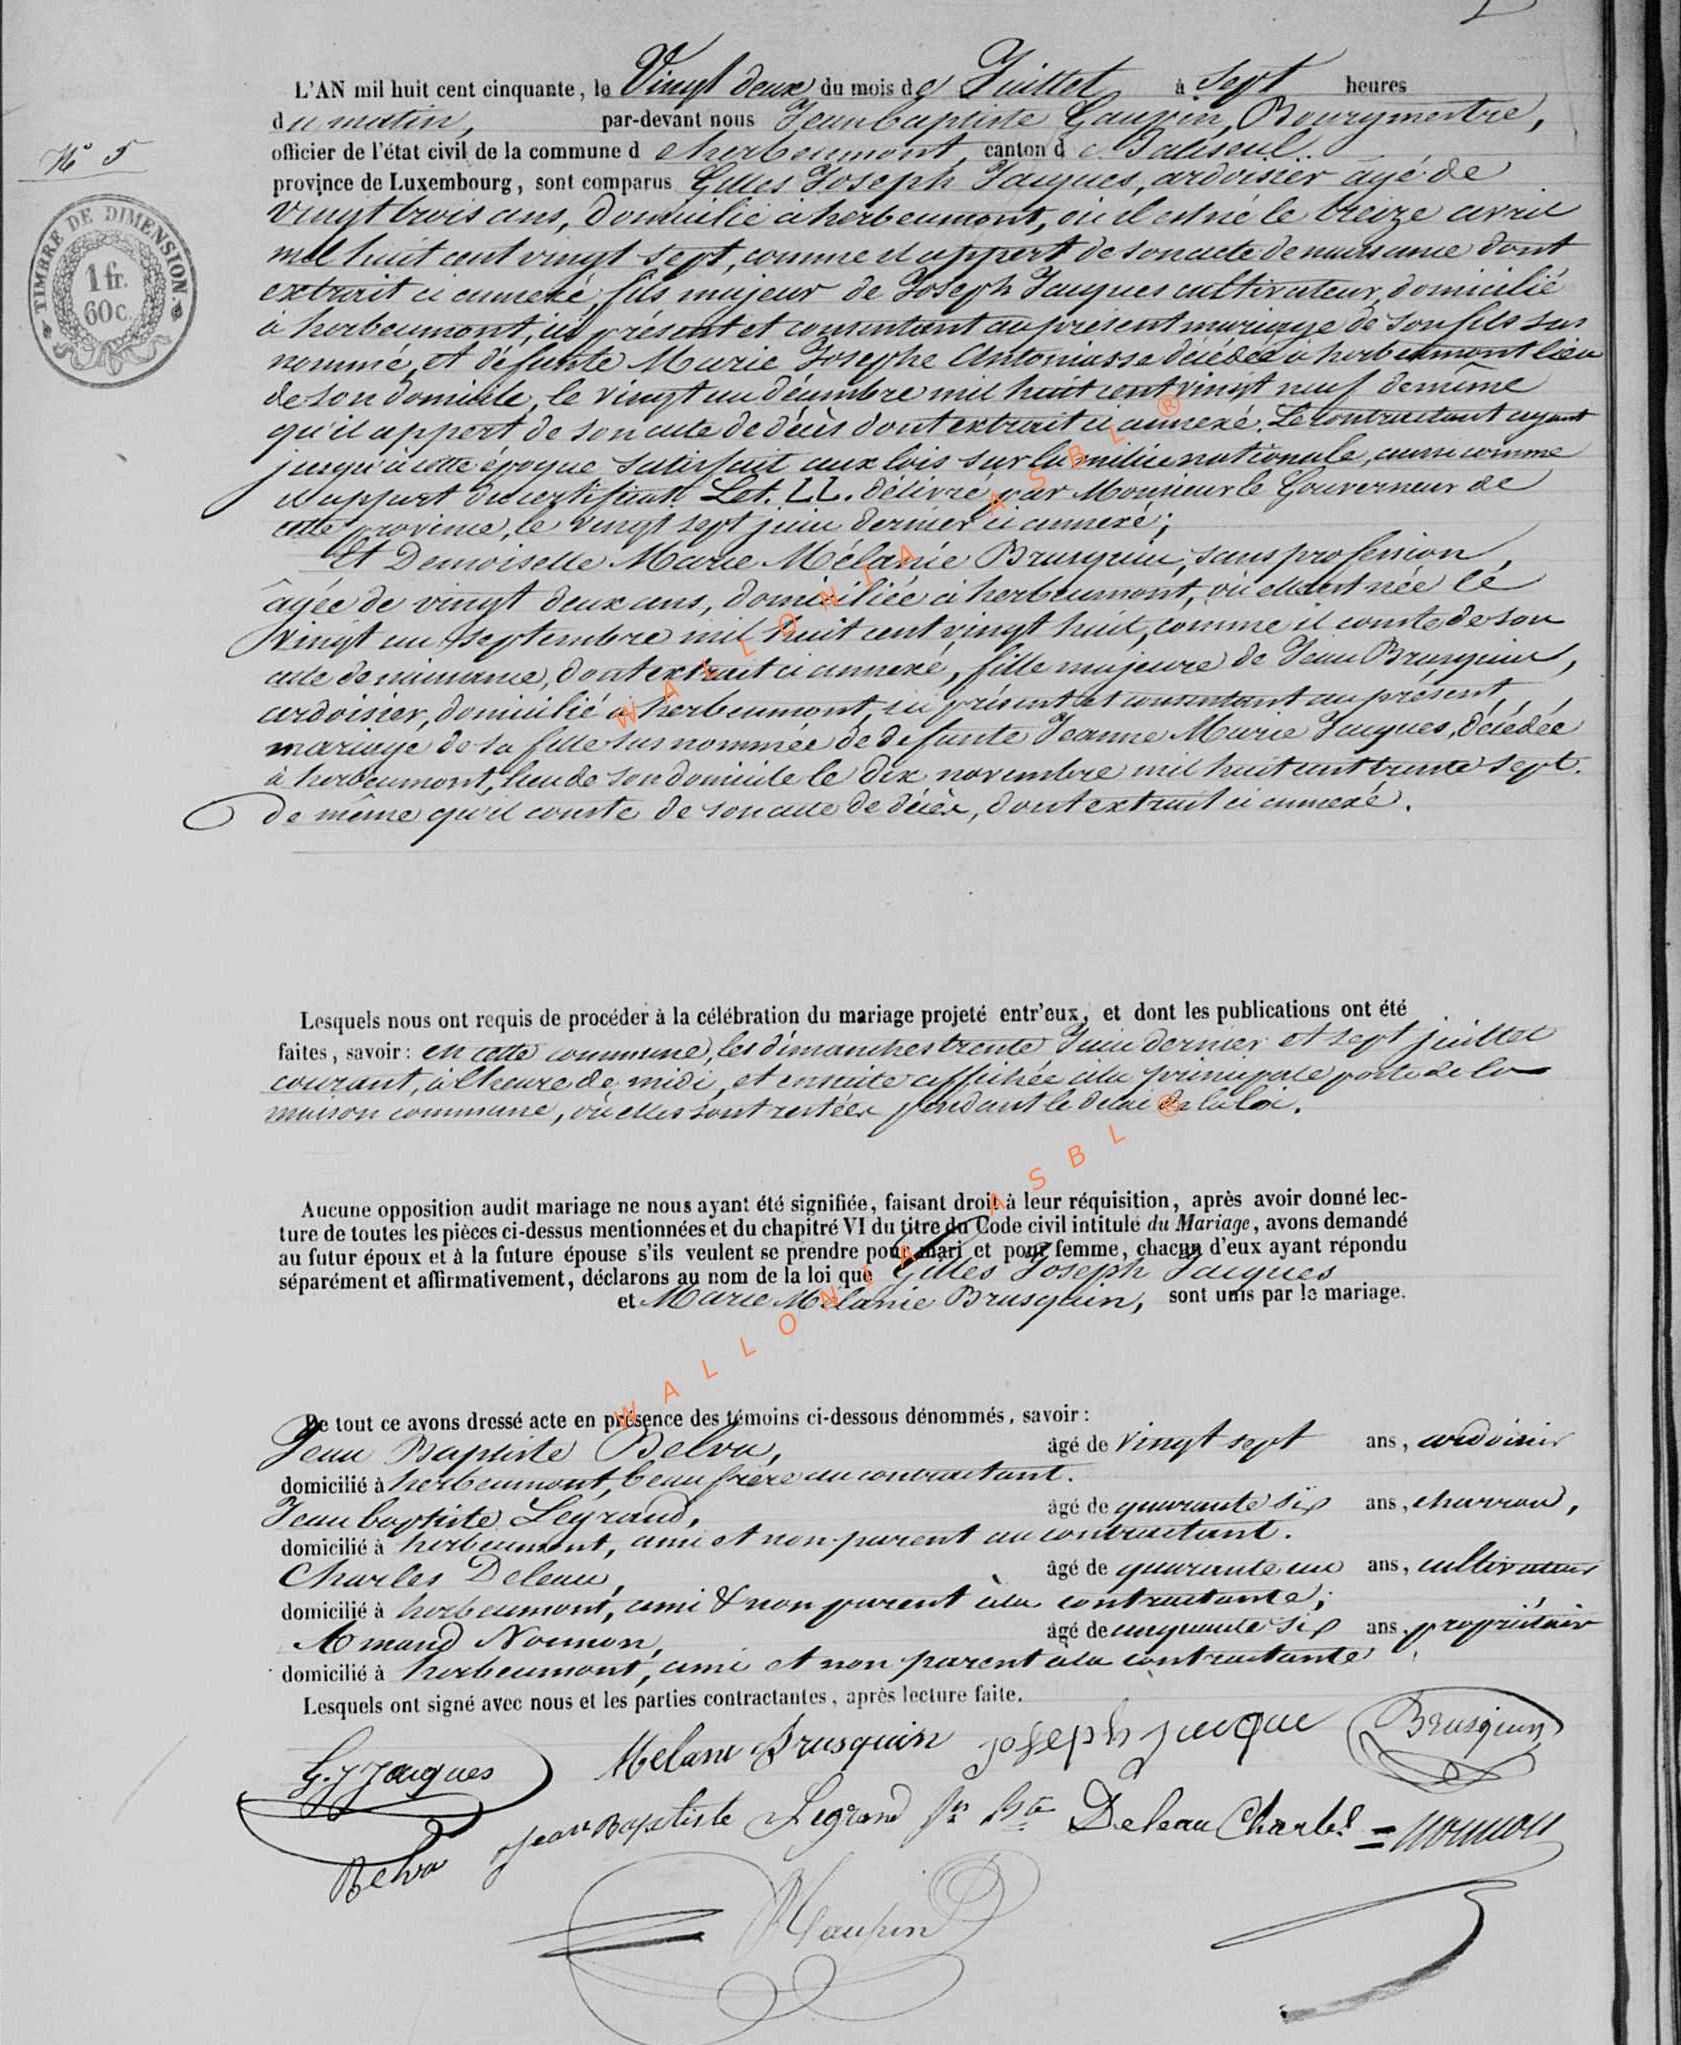 N° 5
TIMBRE DE DIMENSION
1 fr.
60 c.
L'AN mil huit cent cinquante, le Vingt deux du mois de Juillet à Sept heures
du matin, par-devant nous Jean baptiste Bourgmestre,
officier de l'état civil de la commune d'herbeumont, canton de Paliseul
province de Luxembourg, sont comparus Gilles Joseph Jacques, ardoisier âgé de
vingt trois ans, domicilié à herbeumont, où il est né le treize avril
mil huit cent vingt sept, comme il appert de son acte de naissance dont
extrait ci annexé, fils majeur de Joseph Jacques cultivateur, domicilié
à herbeumont, ici présent et consentant au présent mariage de son fils sus
nommé, et défunte Marie Josephe Antoniasse décédée à herbeumont lieu
de son domicile, le vingt un décembre mil huit cent vingt neuf de même
qu'il appert de son acte de décès dont extrait ci annexé. Le contractant ayant
jusqu'à cette époque satisfait aux lois sur la milice nationale, aussi comme
il appert du certificat Let. LL. délivré par Monsieur le Gouverneur de
cette province, le vingt sept juin dernier ci annexé;
Et Demoiselle Marie Mélanie Brusquin, sans profession,
âgée de vingt deux ans, domiciliée à herbeumont, où elle est née le
vingt un septembre mil huit cent vingt huit, comme il conste de son
acte de naissance, dont extrait ci annexé, fille majeure de Jean Brusquin,
ardoisier, domicilié à herbeumont, ici présent et consentant au présent
mariage de sa fille sus nommée de défunte Jeanne Marie Jacques, décédée
à herbeumont, lieu de son domicile le dix novembre mil huit cent trente sept.
De même qu'il conste de son acte de décès, dont extrait ci annexé.
Lesquels nous ont requis de procéder à la célébration du mariage projeté entr'eux, et dont les publications ont été
faites, savoir: en cette commune, les dimanches trente Juin dernier et sept juillet
courant, à l'heure de midi, et ensuite affichée à la principale porte de la
maison commune, où elles sont restées pendant le délai de la loi.
Aucune opposition audit mariage ne nous ayant été signifiée, faisant droit à leur réquisition, après avoir donné lec-
ture de toutes les pièces ci-dessus mentionnées et du chapitre VI du titre du Code civil intitulé du Mariage, avons demandé
au futur époux et à la future épouse s'ils veulent se prendre pour mari et pour femme, chacun d'eux ayant répondu
séparément et affirmativement, déclarons au nom de la loi que Gilles Joseph Jacques
et Marie Mélanie Brusquin, sont unis par le mariage.
De tout ce avons dressé acte en présence des témoins ci-dessous dénommés, savoir:
Jean Baptiste Belva, âgé de vingt sept ans, ardoisier
domicilié à herbeumont, beau frère au contractant.
Jean baptiste Legrand, âgé de quarante six ans, charron,
domicilié à herbeumont, ami et non parent au contractant.
Charles Deleau, âgé de quarante un ans, cultivateur
domicilié à herbeumont, ami & non parent à la contractante;
Amand Noumon, âgé de cinquante six ans, propriétaire
domicilié à herbeumont, ami et non parent à la contractante
Lesquels ont signé avec nous et les parties contractantes, après lecture faite.
G. J Jacques Melanie Brusquin joseph jacque Brusquin
Belva jean Baptiste Legrand Deleau Charles Noumon
WALLONIA ASBL ®
WALLONIA ASBL ®